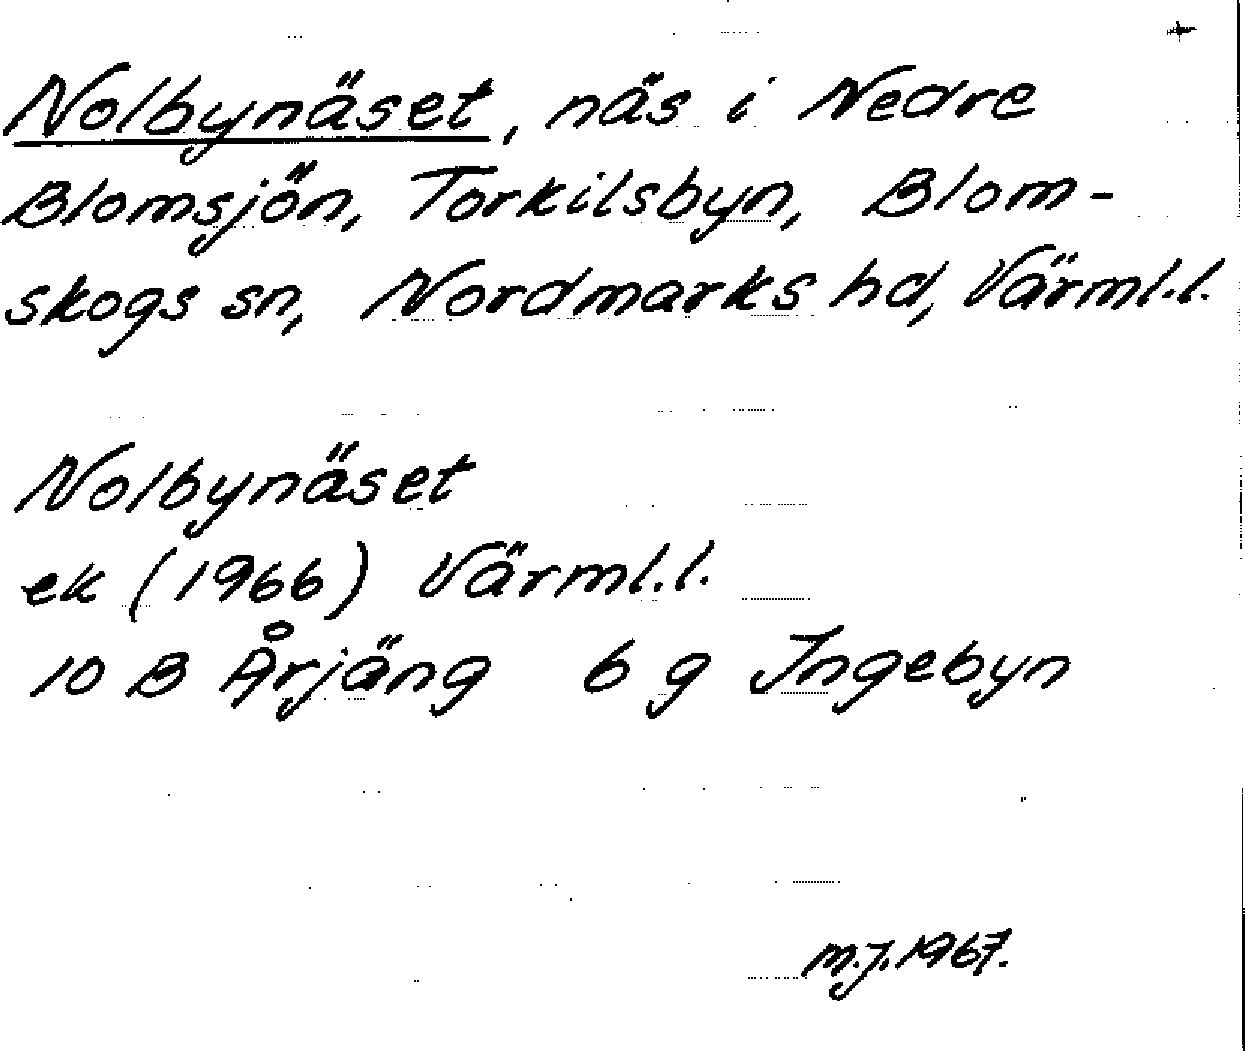 Nolbynäset, näs i Nedre
Blomsjön, Torkilsbyn, Blom-
skogs sn, Nordmarks hd, Värml.l.
Nolbynäset
ek (1966) Värml.l.
10 B Årjäng 6 g Ingebyn
M.J. 1967.